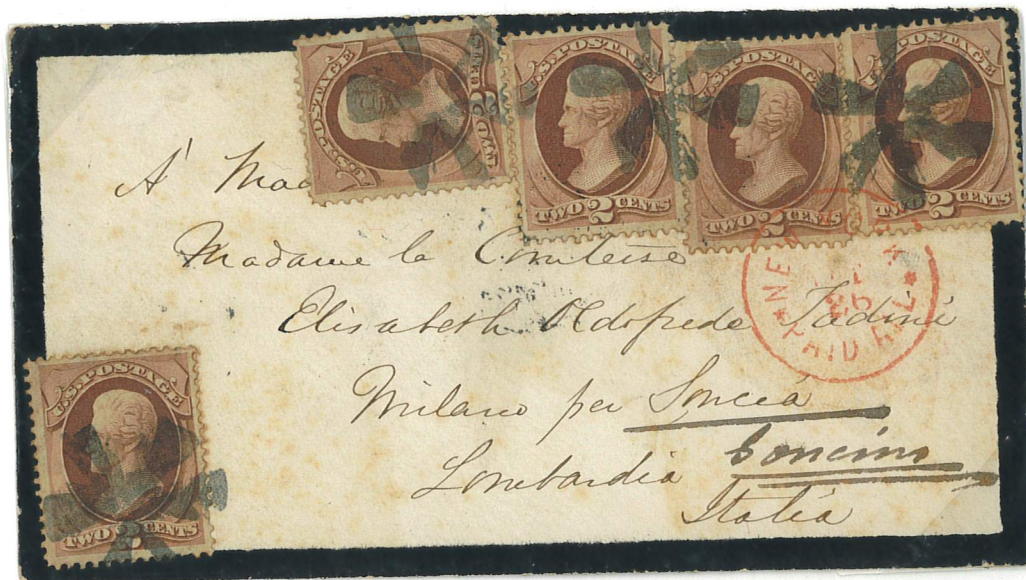 U.S. POSTAGE
TWO 2 CENTS
U.S. POSTAGE
TWO 2 CENTS
U.S. POSTAGE
TWO 2 CENTS
U.S. POSTAGE
TWO 2 CENTS
A' Mad
Madame la Comtesse
Elisabeth Oldofrede Tadini
Milano per Soncia
Lombardia Soncino
Italia
NEW
PAID ALL
U.S. POSTAGE
TWO 2 CENTS